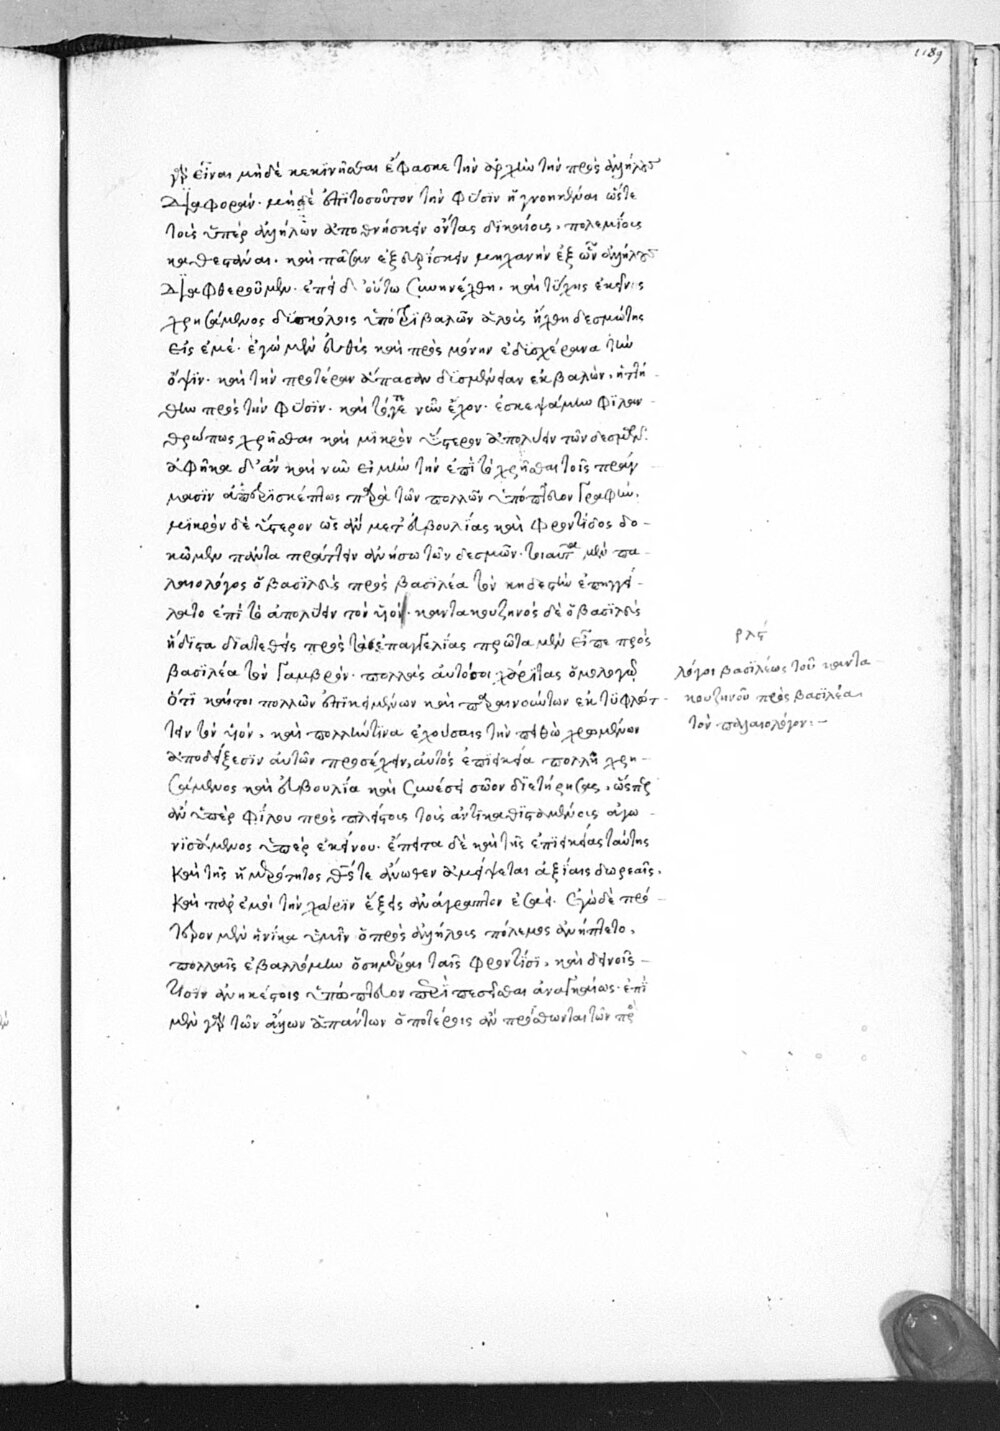 1189
γὰρ εἶναι μηδὲ κεκινῆσθαι ἔφασκε τὴν ἀρχὴν τὴν πρὸς ἀλλήλους
διαφοράν. μηδὲ ἐπιτοσοῦτον τὴν φύσιν ἠγνοηκέναι ὥστε
τοὺς ὑπὲρ ἀλλήλων ἀποθνήσκειν ὄντας δικαίους, πολεμίους
καθεστάναι. καὶ πᾶσαν ἐξευρίσκειν μηχανὴν ἐξ ὧν ἀλλήλους
διαφθεροῦμεν. ἐπεὶ δ' οὕτω συνηνέχθη, καὶ τύχης ἐκεῖνος
χρησάμενος δυσκόλοις
εἰς ἐμέ. ἐγὼ μὲν εὐθὺς καὶ πρὸς μόνην ἐδυσχέρανα τὴν
ὄψιν. καὶ τὴν προτέραν ἅπασαν δυσμένειαν ἐκβαλὼν, ἡττή-
θην πρὸς τὴν φύσιν. καὶ ἐσκεψάμην φιλαν-
θρώπως χρῆσθαι καὶ μικρὸν ὕστερον ἀπολύειν τῶν δεσμῶν.
ἀφῆκα δ' ἂν καὶ νῦν εἰ μὴ τὴν ἐπὶ τὸ χρῆσθαι τοῖς πράγ-
μασιν ἀπερισκέπτως παρὰ τῶν πολλῶν ὑπόπτευον γραφήν.
μικρὸν δὲ ὕστερον ὡς ἂν μετ' εὐβουλίας καὶ φροντίδος δο-
κῶμεν πάντα πράττειν ἀνήσω τῶν δεσμῶν. τοιαῦτα μὲν πα-
λαιολόγος ὁ βασιλεὺς πρὸς βασιλέα τὸν κηδεστὴν ἐπηγγεί-
λατο ἐπὶ τὸ ἀπολύειν τὸν υἱόν. καντακουζηνὸς δὲ ὁ βασιλεὺς
ἥδιστα διατεθεὶς πρὸς τὰς ἐπαγγελίας πρῶτα μὲν εἶπε πρὸς
βασιλέα τὸν γαμβρόν. πολλὰς αὐτόσοι χάριτας ὁμολογῶ
ὅτι καίτοι πολλῶν ἐπικειμένων καὶ παραινούντων ἐκτυφλώτ-
τειν τὸν υἱόν, καὶ πολλήν τινα ἐχούσαις τὴν πειθὼ χρωμένων
ἀποδείξεσιν αὐτῶν προσέχειν, αὐτὸς ἐπιεικείᾳ πολλῇ χρη-
σάμενος καὶ εὐβουλίᾳ καὶ συνέσει σῶον διετήρησας, ὥσπερ
ἂν ὑπὲρ φίλου πρὸς πλείστους τοὺς ἀντικαθισταμένους ἀγω-
νισάμενος ὑπὲρ ἐκείνου. ἔπειτα δὲ καὶ τῆς ἐπιεικείας ταύτης
καὶ τῆς ἡμερότητος θεός τε ἄνωθεν ἀμείψεται ἀξίαις δωρεαῖς,
καὶ παρ' ἐμοὶ τὴν χάριν ἕξεις ἀνάγραπτον ἐσαεί. ἐγὼ δὲ πρό-
τερον μὲν ἡνίκα ὑμῖν ὁ πρὸς ἀλλήλους πόλεμος ἀνήπτετο,
πολλαῖς ἐβαλλόμην ὁσημέραι ταῖς φροντίσι, καὶ δεινοῖς
τισιν ἀνηκέστοις ὑπώπτευον περιπεσεῖσθαι ἀναγκαίως. ἐπὶ
μὲν γὰρ τῶν ἄλλων ἁπάντων ὁποτέροις ἂν πρόσθωνται τῶν
ρλϛ
λόγοι βασιλέως τοῦ καντα
κουζηνοῦ πρὸς βασιλέα
τὸν παλαιολόγον:–